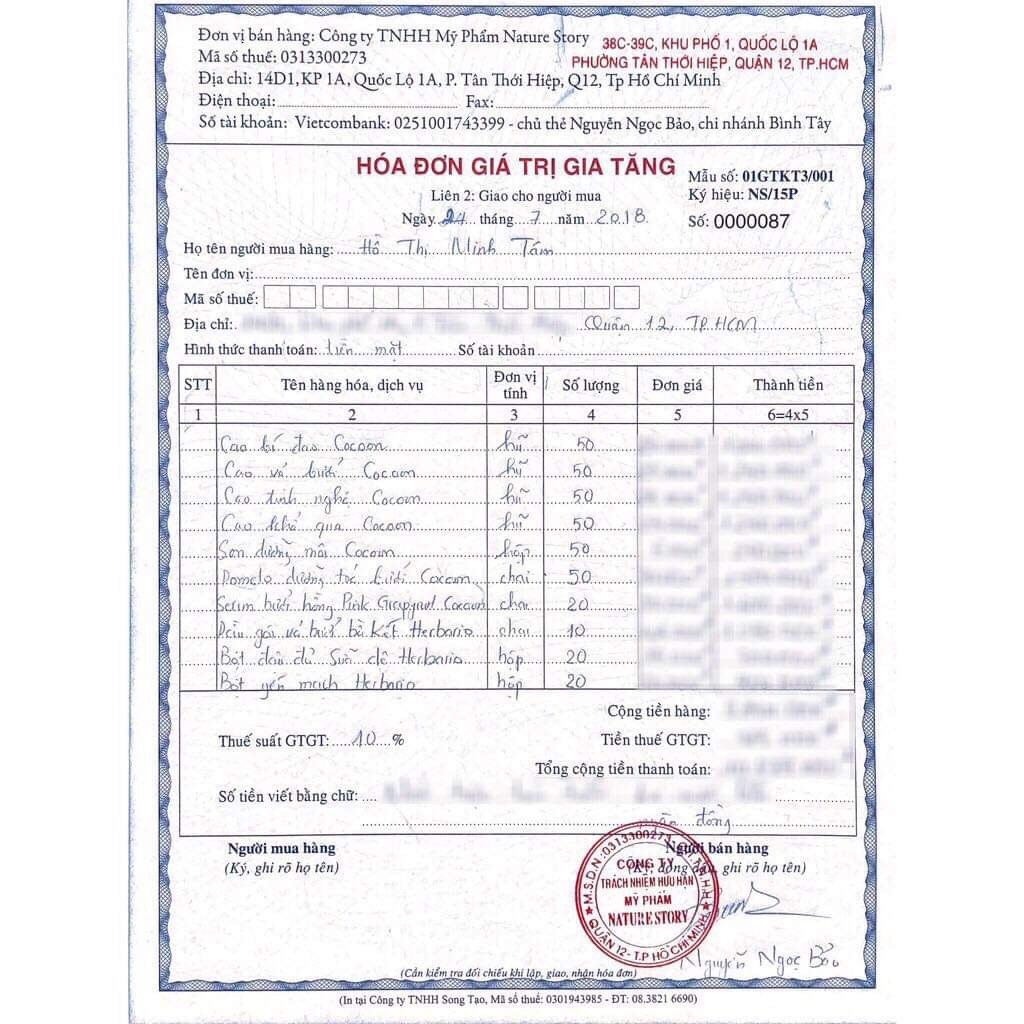 Đơn vị bán hàng: Công ty TNHH Mỹ Phẩm Nature Story
38C-39C, KHU PHỐ 1, QUỐC LỘ 1A
Mã số thuế: 0313300273
PHƯỜNG TÂN THỚI HIỆP, QUẬN 12, TP.HCM
Địa chỉ: 14D1, KP 1A, Quốc Lộ 1A, P. Tân Thới Hiệp, Q12, Tp Hồ Chí Minh
Điện thoại: Fax:
Số tài khoản: Vietcombank: 0251001743399 - chủ thẻ Nguyễn Ngọc Bảo, chi nhánh Bình Tây
HÓA ĐƠN GIÁ TRỊ GIA TĂNG
Mẫu số: 01GTKT3/001
Liên 2: Giao cho người mua
Ký hiệu: NS/15P
Ngày 24 tháng 7 năm 2018
Số: 0000087
Họ tên người mua hàng: Hồ Thị Minh Tám
Tên đơn vị:
Mã số thuế:
Địa chỉ: Quận 12, TP.HCM
Hình thức thanh toán: tiền mặt Số tài khoản
STT Tên hàng hóa, dịch vụ Đơn vị tính Số lượng Đơn giá Thành tiền
1 2 3 4 5 6=4x5
Cao bí đao Cocoon hũ 50
Cao vỏ bưởi Cocoon hũ 50
Cao tinh nghệ Cocoon hũ 50
Cao khổ qua Cocoon hũ 50
Son dưỡng môi Cocoon hộp 50
Pomelo dưỡng tóc bưởi Cocoon chai 50
Serum bưởi hồng Pink Cocoon chai 20
Dầu gội vỏ bưởi bồ kết Herbario chai 10
Bột đậu đỏ Sữa dê Herbario hộp 20
Bột yến mạch Herbario hộp 20
Cộng tiền hàng:
Thuế suất GTGT: 10 % Tiền thuế GTGT:
Tổng cộng tiền thanh toán:
Số tiền viết bằng chữ:
đồng
Người mua hàng Người bán hàng
(Ký, ghi rõ họ tên) (Ký, đóng dấu, ghi rõ họ tên)
M.S.D.N:0313300273
CÔNG TY
TRÁCH NHIỆM HỮU HẠN
MỸ PHẨM
NATURE STORY
QUẬN 12 - T.P HỒ CHÍ MINH
Nguyễn Ngọc Bảo
(Cần kiểm tra đối chiếu khi lập, giao, nhận hóa đơn)
(In tại Công ty TNHH Song Tạo, Mã số thuế: 0301943985 - ĐT: 08.3821 6690)